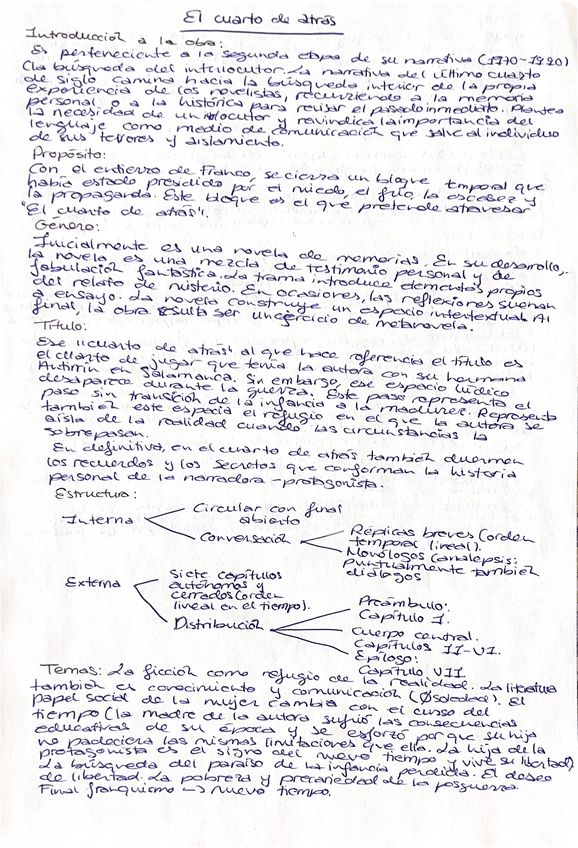 El cuarto de atrás
Introducción a la obra:
Es perteneciente a la segunda etapa de su narrativa (1970-1980)
(la búsqueda del interlocutor. La narrativa del último cuarto
de siglo camina hacia la búsqueda interior de la propia
experiencia de los novelistas, recurriendo a la memoria
personal o a la histórica para revisar el pasado inmediato. Plantea
la necesidad de un locutor y reivindica la importancia del
lenguaje como medio de comunicación que salve al individuo
de sus terrores y aislamiento.
Propósito:
Con el entierro de Franco, se cierra un bloque temporal que
había estado presidido por el miedo, el frío, la escasez y
la propaganda. Este bloque es el que pretende atravesar
"El cuarto de atrás".
Género:
Inicialmente es una novela de memorias. En su desarrollo,
la novela es una mezcla de testimonio personal y de
fabulación fantástica. La trama introduce elementos propios
del relato de misterio. En ocasiones, las reflexiones suenan
a ensayo. La novela construye un espacio intentextual. Al
final, la obra resulta ser un ejercicio de metanovela.
Título:
Ese "cuarto de atrás" al que hace referencia el título es
el cuarto de jugar que tenía la autora con su hermana
en Salamanca. Sin embargo, ese espacio lúdico
desaparece durante la guerra. Este paso representa el
paso sin transición de la infancia a la madurez. Representa
también este espacio el refugio en el que la autora se
aísla de la realidad cuando las circunstancias la
sobrepasan.
En definitiva, en el cuarto de atrás también duermen
los recuerdos y los secretos que conforman la historia
personal de la narradora-protagonista.
Estructura:
Interna
Circular con final
abierto
Conversación
Réplicas breves (orden
temporal lineal).
Monólogos (analepsis:
puntualmente también
diálogos
Externa
Siete capítulos
autónomos y
cerrados (orden
lineal en el tiempo).
Distribución
Preámbulo:
Capítulo I.
Cuerpo central.
Capítulos II-VI.
Epílogo:
Capítulo VII
Temas: La ficción como refugio de la realidad. La literatura
también es conocimiento y comunicación (Ø soledad). El
papel social de la mujer cambia con el curso del
tiempo (la madre de la autora sufrió las consecuencias
educativas de su época y se esforzó por que su hija
no padeciera las mismas limitaciones que ella. La hija de la
protagonista es el signo del nuevo tiempo y vive su libertad)
La búsqueda del paraíso de la infancia perdida. El deseo
de libertad. La pobreza y precariedad de la posguerra.
Final franquismo → nuevo tiempo.